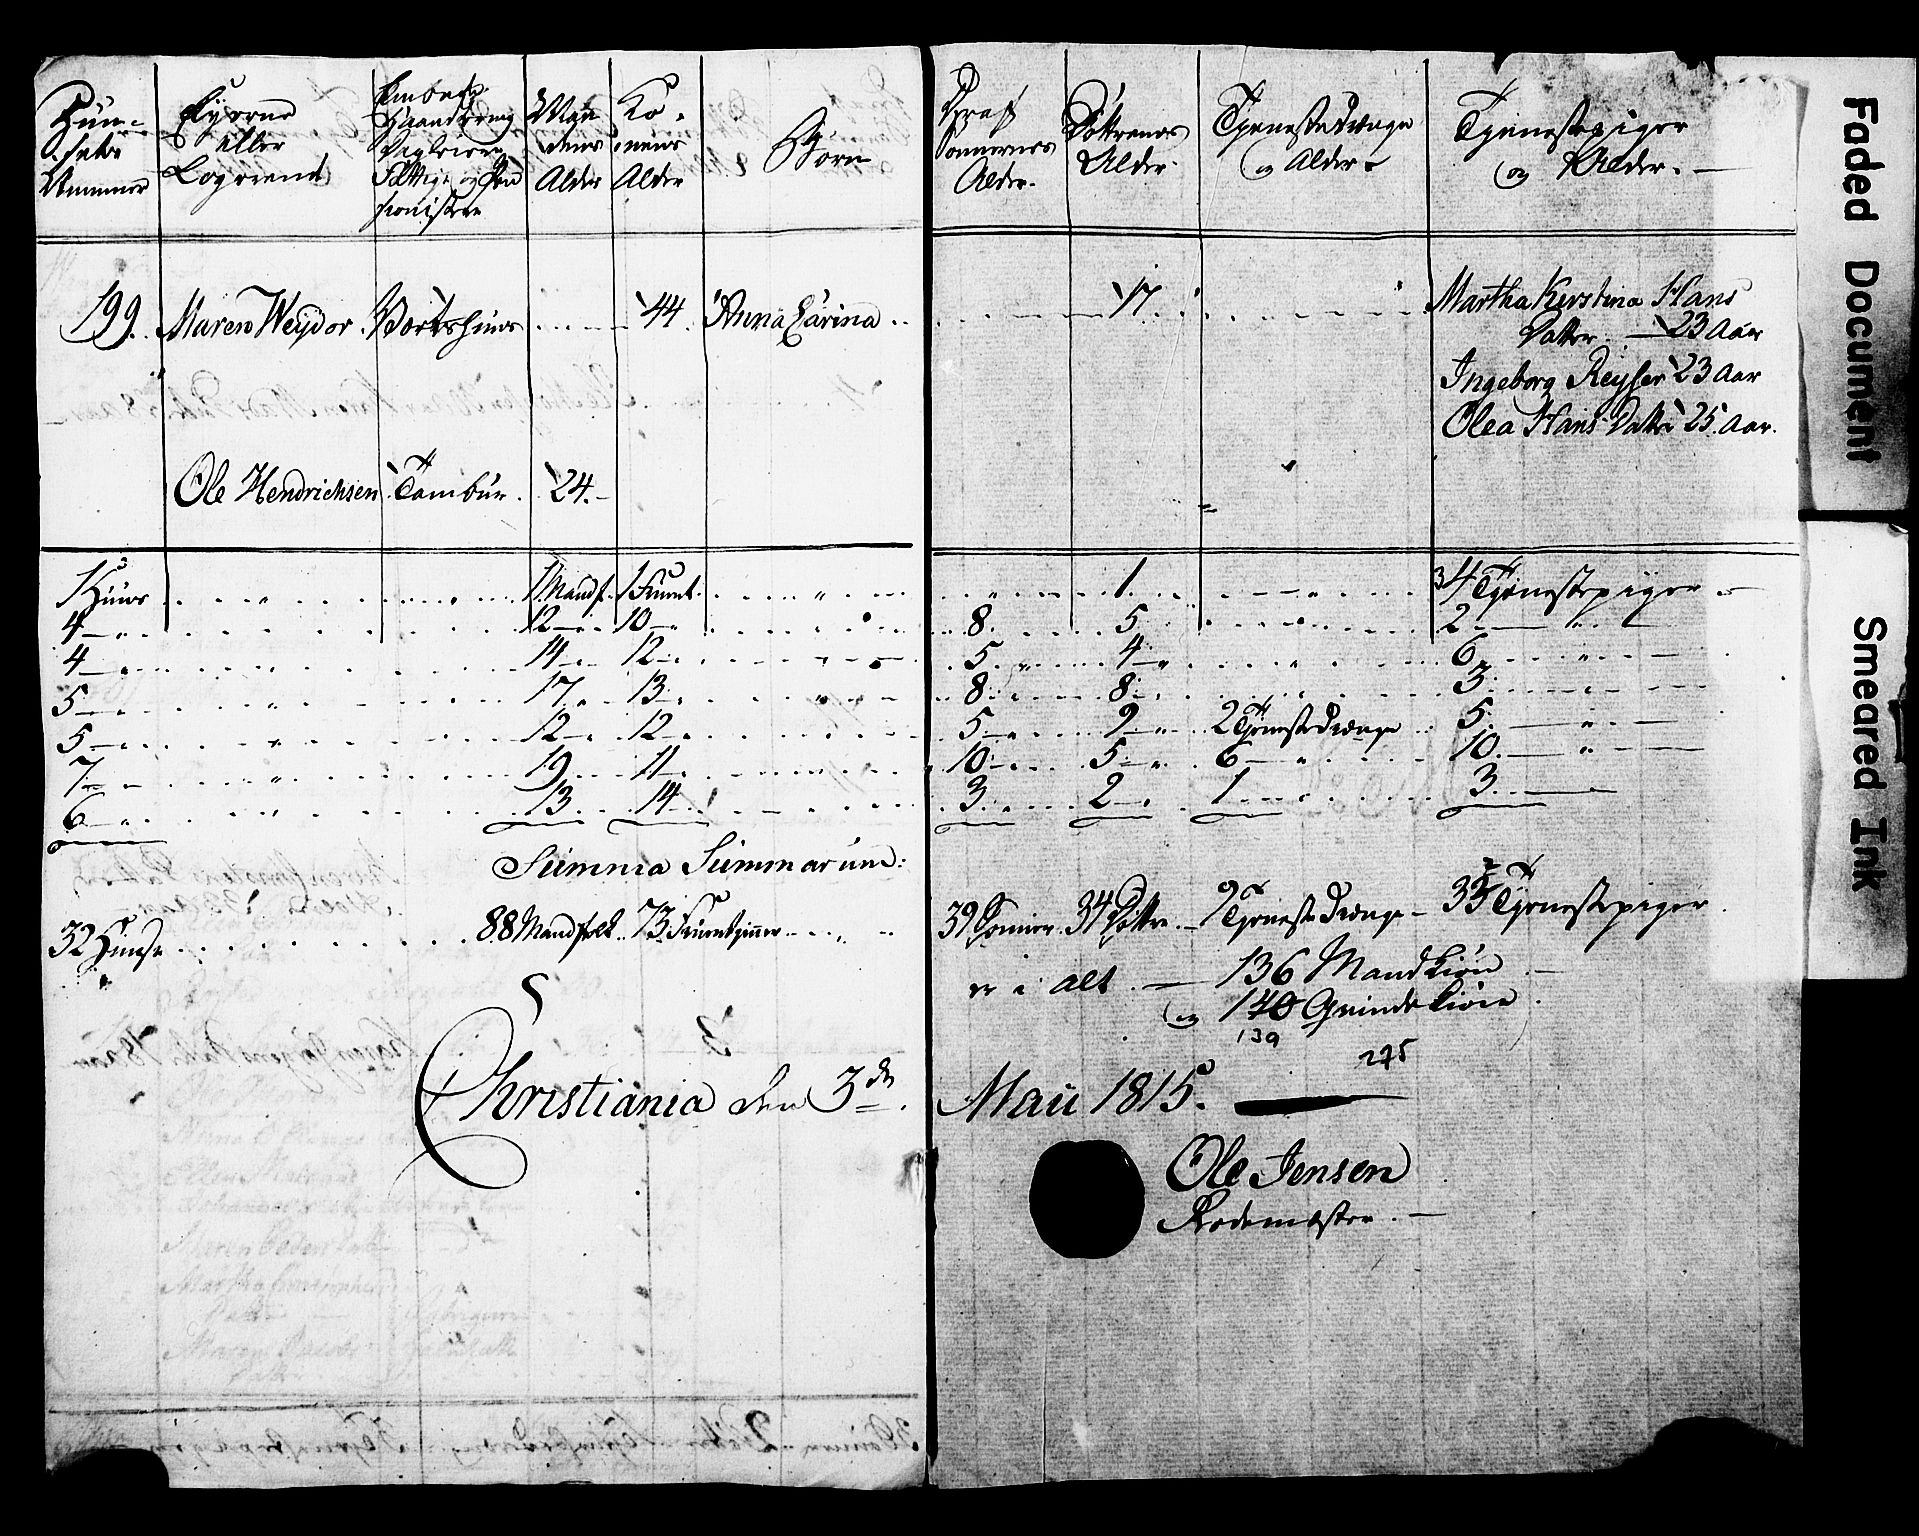 Huus=
sets
Nummer
Eyerne
eller
Logerend
Embeds
Haandtering
Fattige og Pen
sionister
Mæn
dens
Alder
Ko=
nens
Alder
Børn
Sønnernes
Alder.
Døttrenes
Alder.
Tjenestedrenge
og Alder.
Tjenestepiger
og Alder. —
199. Maren Weydor Vertshuus 44. Anna Carina 17
Martha Kirstina Hans
Datter. — 23 Aar
Ingeborg Reyser 23 Aar
Olea Hans Datter 25. Aar.
Ole Hendrichsen Tambur. 24.
1 Huus 1 Mandf. 1 Fruent. 1 34 Tjenestepiger
4 12 10 8 5 2
4 14 12 5 4 6
5 17 13 8 8 3
5 12 12 5 9 2 Tjenestedrenge 5
7 19 11 10 5 6 10
6 13 14 3 2 1 3
Summa Summarum:
32 Huuse 88 Mandfolk 73 Fruentzimmer 39 Sønner 34 Døttre 9 Tjenestedrenge 33 Tjenestepiger
er i alt — 136 Mandkiøn
og 140 Qvindekiøn
139
275
Christiania den 3de Maii 1815.
Ole Jensen
Rodemæster.
Faded Document
Smeared Ink